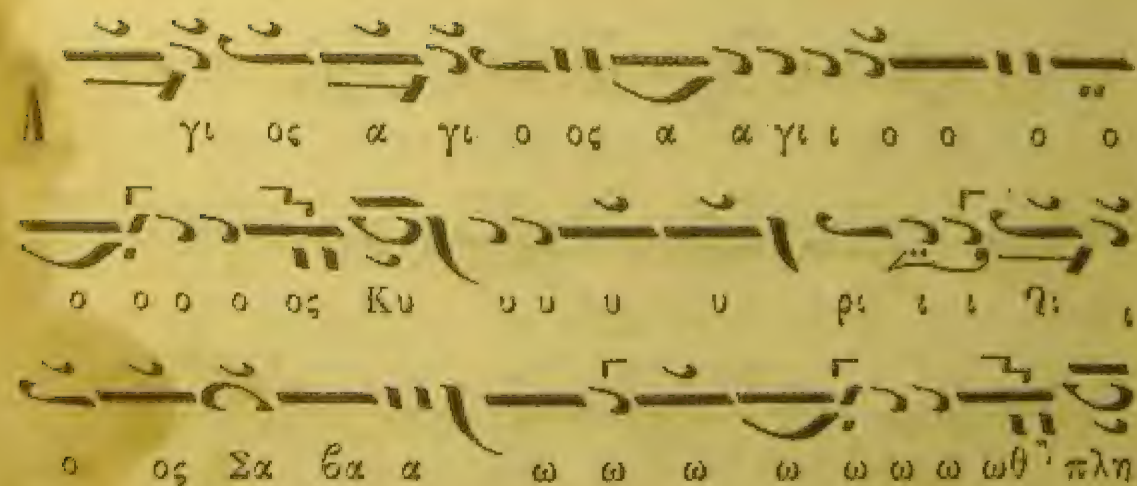 Λ γι ος α γι ο ος α α γι ι ο ο ο ο
ο ο ο ο ος Κυ υ υ υ υ ρι ι ι ι
ο ος Σα ϐα α ω ω ω ω ω ω ω ωθ πλη